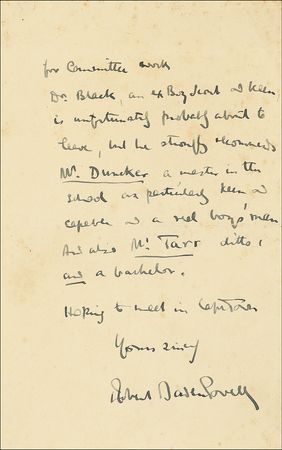 for Committee work
Dr. Black, an ex Boy Scout & keen,
is unfortunately probably about to
leave, but he strongly recommends
Mr. Duncker a master in the
school as particularly keen &
capable and a real boys' man
And also Mr. Tarr ditto,
and a bachelor.
Hoping to meet in Cape Town
Yours sincy
Robert Baden Powell